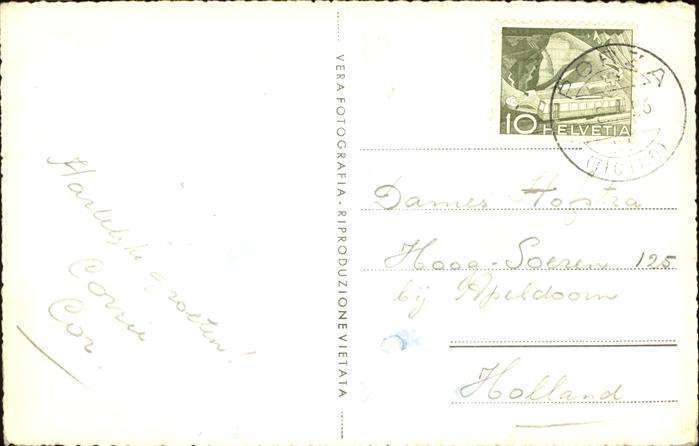 Hartelijke groeten!
Corrie
Cor.
VERA FOTOGRAFIA - RIPRODUZIONE VIETATA
10 HELVETIA
(TICINO)
Dames Hofstra
Hoog-Soeren 125
bij Apeldoorn
Holland